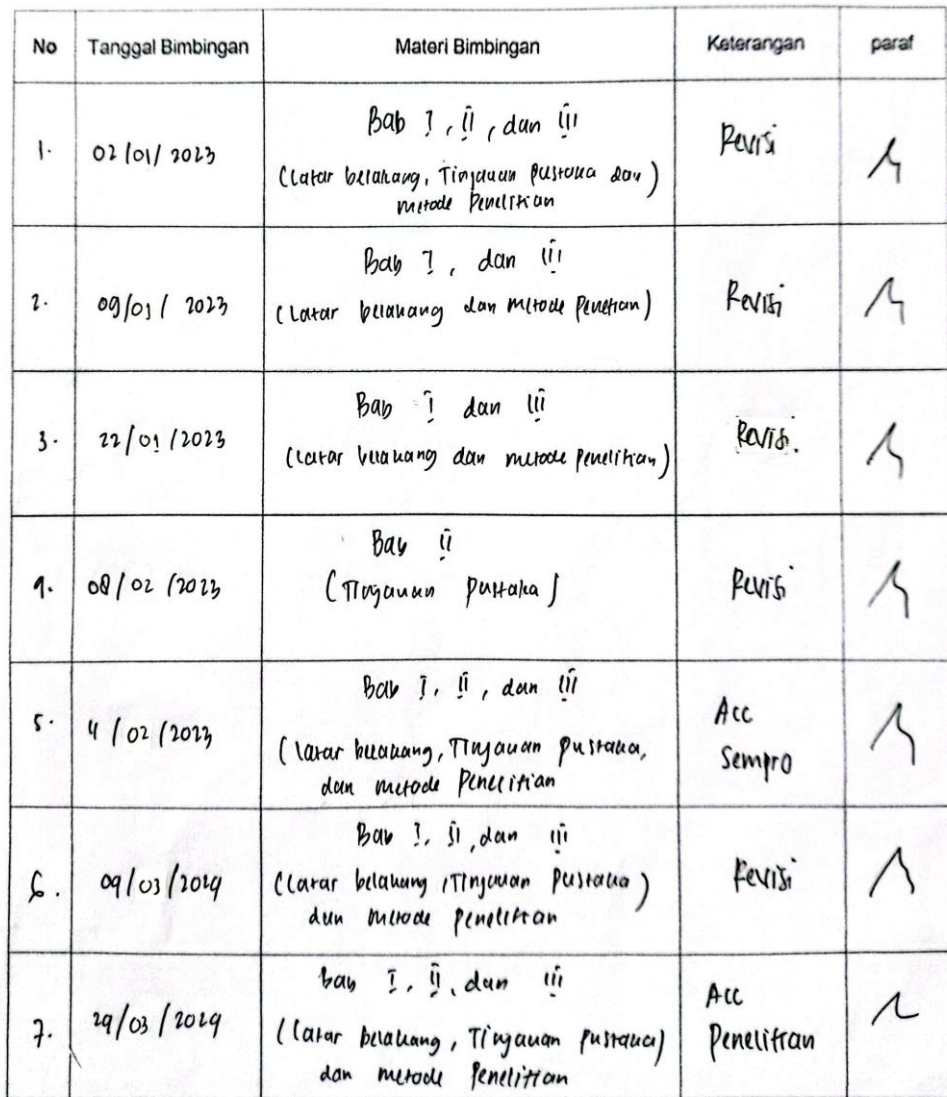 No Tanggal Bimbingan Materi Bimbingan Keterangan paraf
1. 02/01/2023 Bab I, II, dan III Revisi
(Latar belakang, Tinjauan pustaka dan)
metode Penelitian
2. 09/01/2023 Bab I, dan III Revisi
(Latar belakang dan metode Penetian)
3. 22/01/2023 Bab I dan III Revisi.
(Latar belakang dan metode penelitian)
4. 08/02/2023 Bab II Revisi
(Tinjauan pustaka)
5. 4/02/2023 Bab I, II, dan III Acc
(latar belakang, Tinjauan pustaka, Sempro
dan metode Penelitian
6. 09/03/2024 Bab I, II, dan III Revisi
(Latar belakang, Tinjauan Pustaka)
dan metode penelitian
7. 29/03/2024 bab I, II, dan III Acc
(Latar belakang, Tinjauan Pustaka) Penelitian
dan metode Penelitian